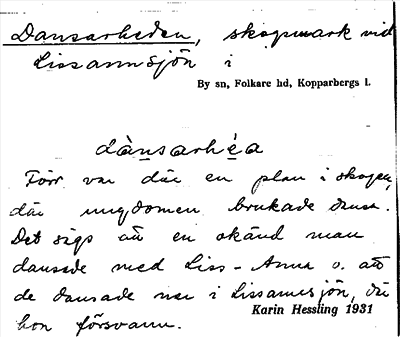 Dansarheden, skogsmark vid
Lissannsjön i
By sn, Folkare hd, Kopparbergs l.
dànsarhéa
Förr var där en plan i skogen,
där ungdomen brukade dansa.
Det sägs att en okänd man
dansade med Liss-Anna o. att
de dansade ner i Lissannsjön, där
hon försvann.
Karin Hessling 1931